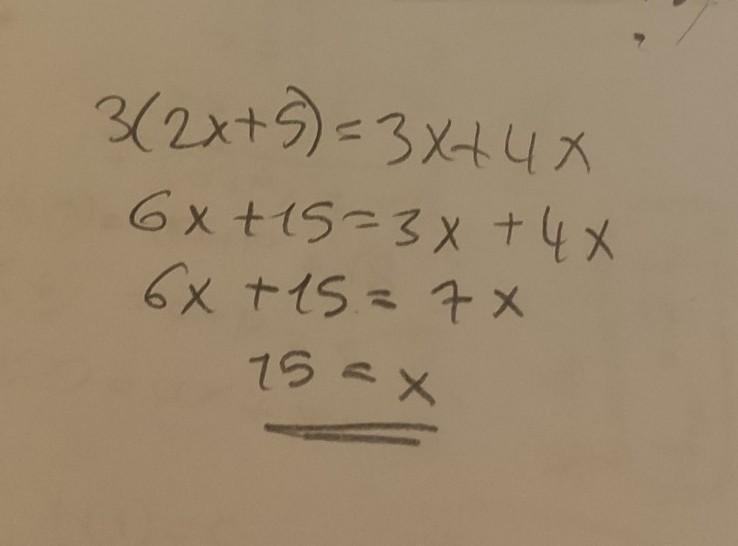 3(2x+5)=3x+4x
6x+15=3x+4x
6x+15=7x
15=x